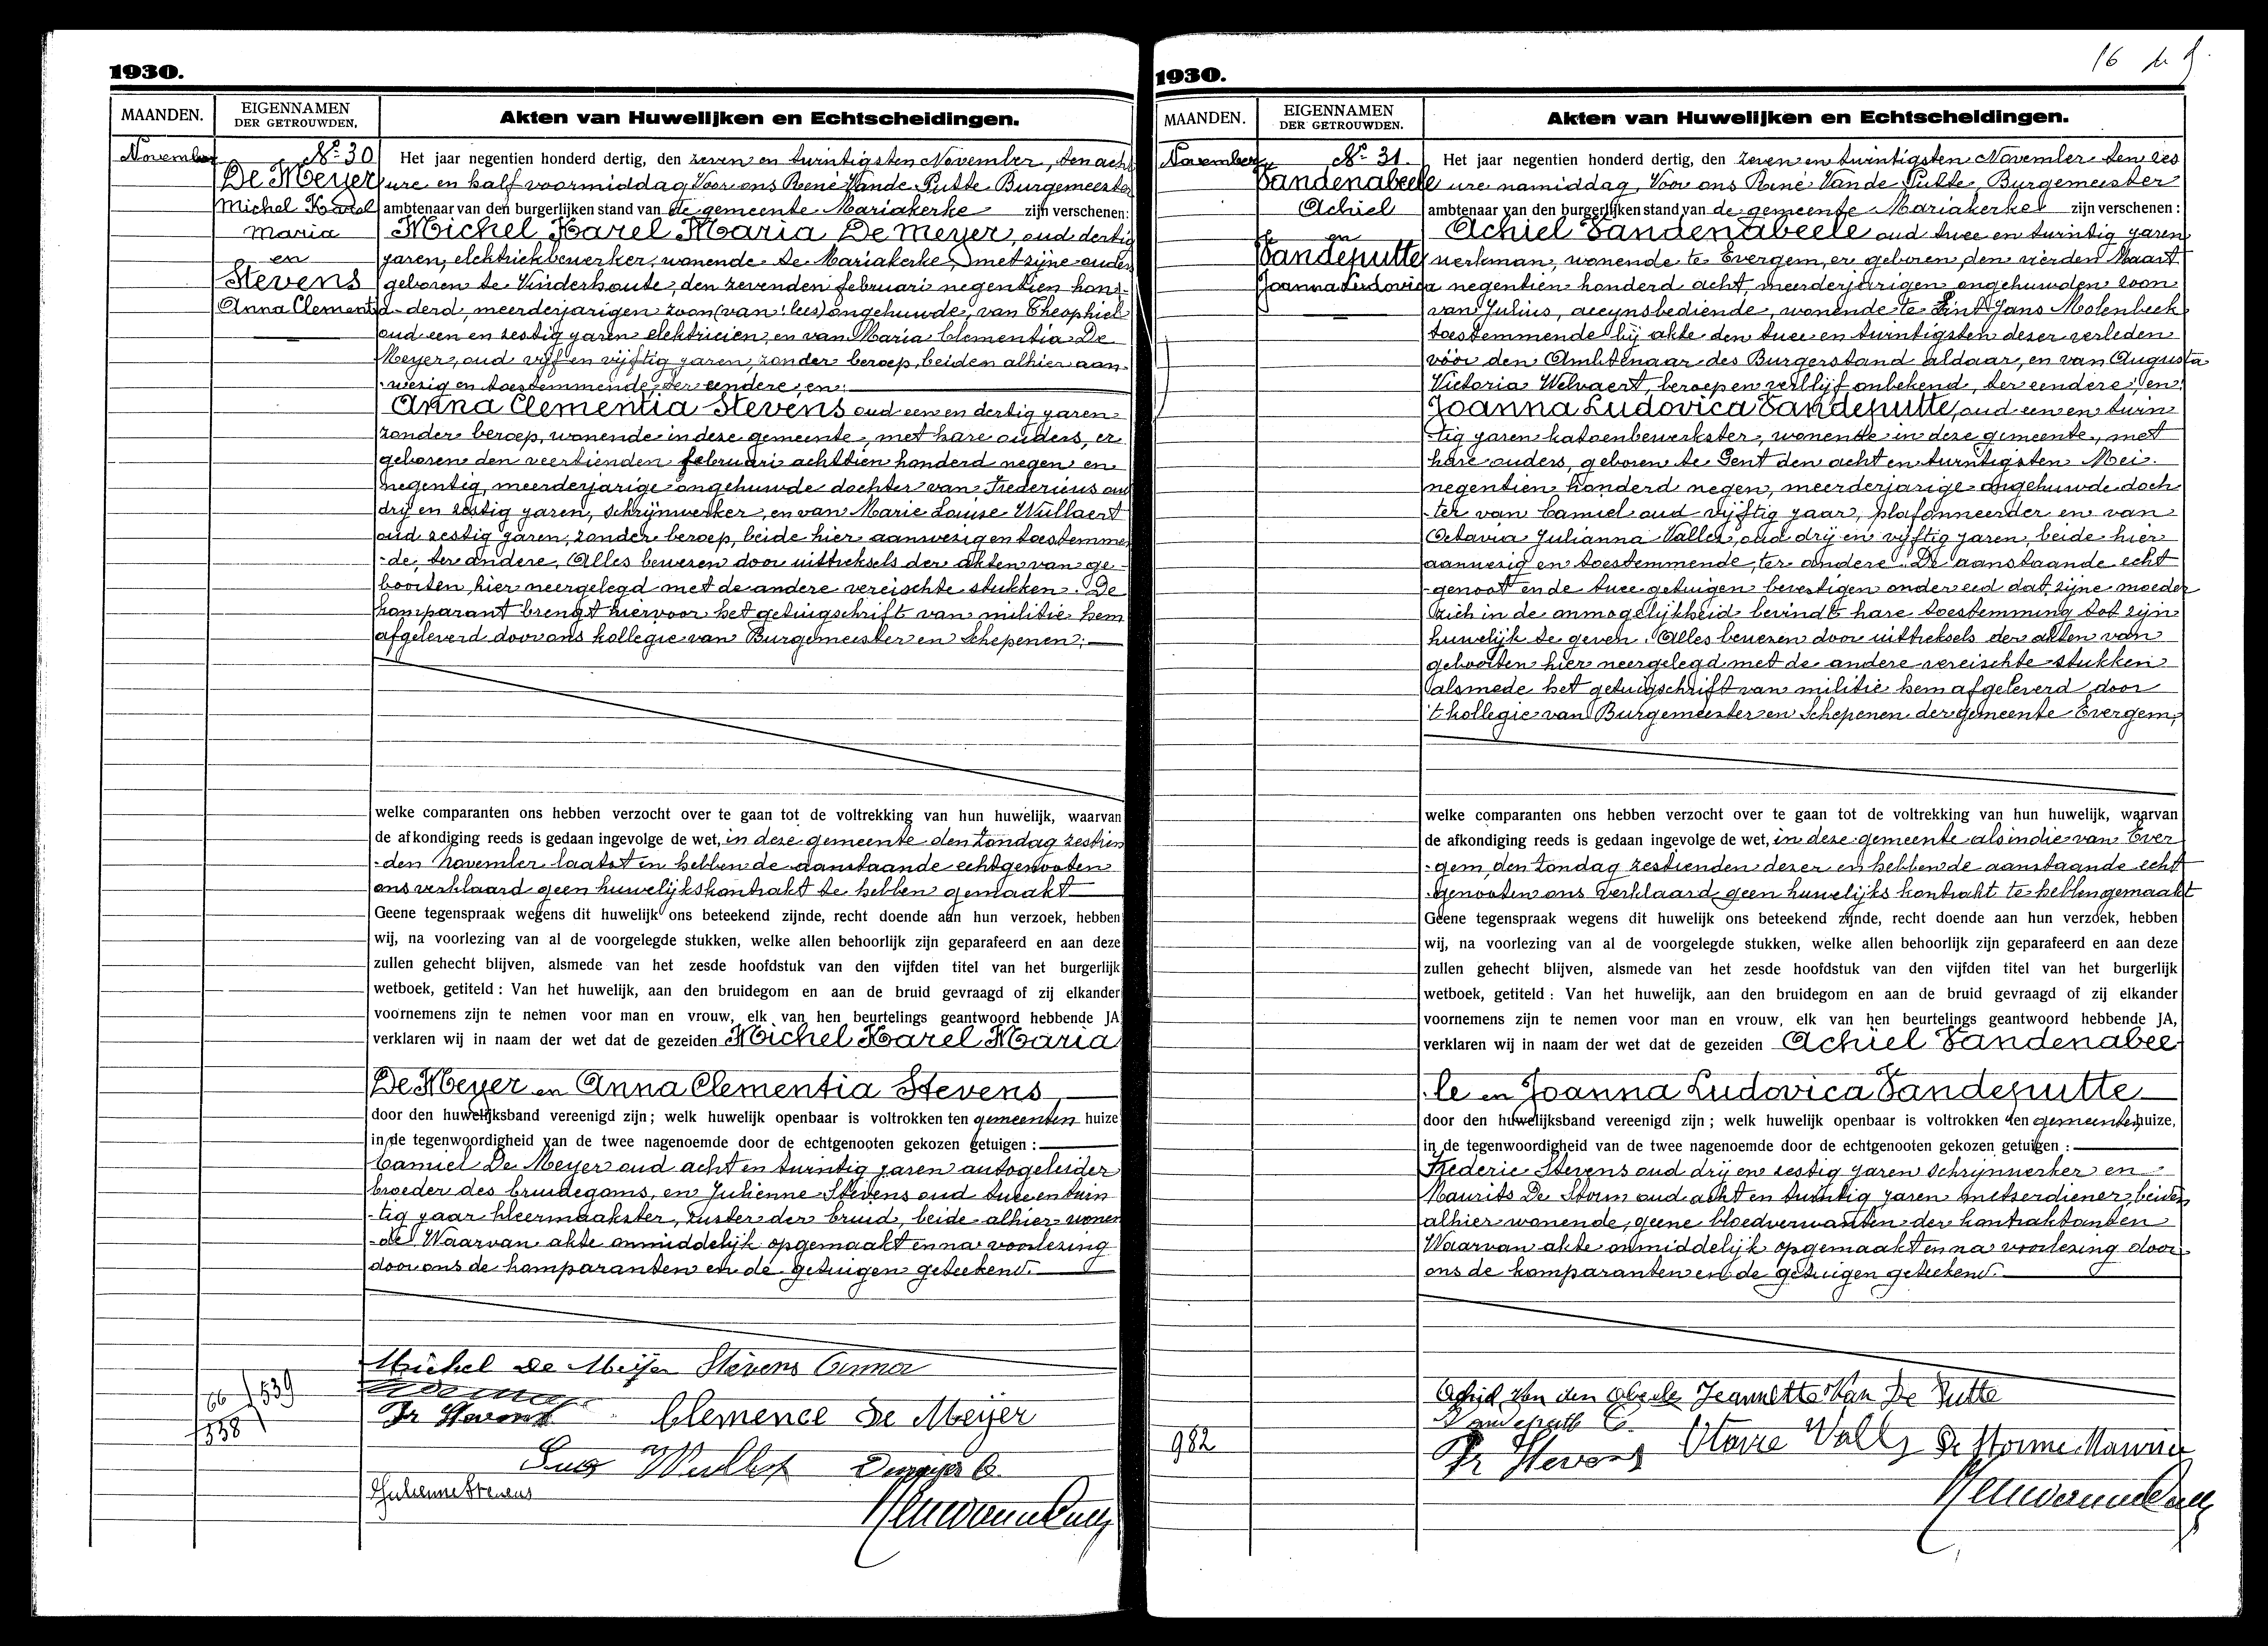 1930.
MAANDEN.
EIGENNAMEN
DER GETROUWDEN.
Akten van Huwelijken en Echtscheidingen.
November
No 30
De Meyer
Michel Karel
Maria
en
Stevens
Anna Clementia
Het jaar negentien honderd dertig, den zeven en twintigsten November, den acht
ure en half voormiddag Voor ons René Vande Putte Burgemeester
ambtenaar van den burgerlijken stand van de gemeente Mariakerke zijn verschenen:
Michel Karel Maria De Meyer, oud dertig
jaren, elektriekbewerker, wonende te Mariakerke, met zijne ouders
geboren te Vinderhoute, den zevenden februari negentien hon-
derd, meerderjarigen zoon (van: lees) ongehuwde, van Theophiel
oud een en zestig jaren elektricien, en van Maria Clementia De
Meyer, oud vijf en vijftig jaren, zonder beroep, beiden alhier aan-
wezig en toestemmende, ter eendere, en:
Anna Clementia Stevens oud een en dertig jaren
zonder beroep, wonende in deze gemeente, met hare ouders, er
geboren den veertienden februari achttien honderd negen en
negentig, meerderjarige ongehuwde dochter van Fredericus oud
drij en zestig jaren, schrijnwerker, en van Marie Louise Wullaert
oud zestig jaren, zonder beroep, beide hier aanwezig en toestemmen
-de, ter andere. Alles bewezen door uittreksels der akten van ge-
boorten, hier neergelegd met de andere vereischte stukken. De
komparant brengt hiervoor het getuigschrift van militie hem
afgeleverd door ons kollegie van Burgemeester en Schepenen:
welke comparanten ons hebben verzocht over te gaan tot de voltrekking van hun huwelijk, waarvan
de afkondiging reeds is gedaan ingevolge de wet, in deze gemeente den Zondag zestien
-den November laatst en hebben de aanstaande echtgenooten
ons verklaard geen huwelijkskontrakt te hebben gemaakt
Geene tegenspraak wegens dit huwelijk ons beteekend zijnde, recht doende aan hun verzoek, hebben
wij, na voorlezing van al de voorgelegde stukken, welke allen behoorlijk zijn geparafeerd en aan deze
zullen gehecht blijven, alsmede van het zesde hoofdstuk van den vijfden titel van het burgerlijk
wetboek, getiteld : Van het huwelijk, aan den bruidegom en aan de bruid gevraagd of zij elkander
voornemens zijn te nemen voor man en vrouw, elk van hen beurtelings geantwoord hebbende JA
verklaren wij in naam der wet dat de gezeiden Michel Karel Maria
De Meyer en Anna Clementia Stevens
door den huwelijksband vereenigd zijn ; welk huwelijk openbaar is voltrokken ten gemeenten huize
in de tegenwoordigheid van de twee nagenoemde door de echtgenooten gekozen getuigen :
Camiel De Meyer oud acht en twintig jaren autogeleider
broeder des bruidegoms, en Julienne Stevens oud twee en twin
-tig jaar kleermaakster, zuster der bruid, beide alhier wonen
-de. Waarvan akte onmiddelijk opgemaakt en na voorlezing
door ons de komparanten en de getuigen geteekend.
Michel De Meyer Stevens Anna
Fr Stevens Clemence De Meijer
Demeyer C.
Julienne Stevens
66 / 539
538
1930.
MAANDEN.
EIGENNAMEN
DER GETROUWDEN.
Akten van Huwelijken en Echtscheidingen.
November
No 31.
Vandenabeele
Achiel
en
Vandeputte
Joanna Ludovica
Het jaar negentien honderd dertig, den zeven en twintigsten November den zes
ure namiddag, Voor ons René Vande Putte, Burgemeester
ambtenaar van den burgerlijken stand van de gemeente Mariakerke zijn verschenen :
Achiel Vandenabeele oud twee en twintig jaren
werkman, wonende te Evergem, er geboren, den vierden Maart
negentien honderd acht, meerderjarigen ongehuwden zoon
van Julius, accynsbediende, wonende te Sint Jans Molenbeek
toestemmende bij akte den twee en twintigsten dezer verleden
vóór den Ambtenaar des Burgerstand aldaar, en van Augusta
Victoria Welvaert, beroep en verblijf onbekend, ter eendere, en:
Joanna Ludovica Vandeputte, oud een en twin
-tig jaren katoenbewerkster, wonende in deze gemeente, met
hare ouders, geboren te Gent den acht en twintigsten Mei
negentien honderd negen, meerderjarige ongehuwde doch
-ter van Camiel oud vijftig jaar, plafonneerder en van
Octavia Julianna Valles, oud drij en vijftig jaren, beide hier
aanwezig en toestemmende, ter andere. De aanstaande echt
-genoot en de twee getuigen bevestigen onder eed dat zijne moeder
zich in de onmogelijkheid bevindt hare toestemming tot zijn
huwelijk te geven. Alles bewezen door uittreksels der akten van
geboorten hier neergelegd met de andere vereischte stukken
alsmede het getuigschrift van militie hem afgeleverd door
't kollegie van Burgemeester en Schepenen der gemeente Evergem,
welke comparanten ons hebben verzocht over te gaan tot de voltrekking van hun huwelijk, waarvan
de afkondiging reeds is gedaan ingevolge de wet, in deze gemeente als in die van Ever
-gem, den Zondag zestienden dezer en hebben de aanstaande echt
-genooten ons verklaard geen huwelijks kontrakt te hebben gemaakt
Geene tegenspraak wegens dit huwelijk ons beteekend zijnde, recht doende aan hun verzoek, hebben
wij, na voorlezing van al de voorgelegde stukken, welke allen behoorlijk zijn geparafeerd en aan deze
zullen gehecht blijven, alsmede van het zesde hoofdstuk van den vijfden titel van het burgerlijk
wetboek, getiteld : Van het huwelijk, aan den bruidegom en aan de bruid gevraagd of zij elkander
voornemens zijn te nemen voor man en vrouw, elk van hen beurtelings geantwoord hebbende JA,
verklaren wij in naam der wet dat de gezeiden Achiel Vandenabee
-le en Joanna Ludovica Vandeputte
door den huwelijksband vereenigd zijn ; welk huwelijk openbaar is voltrokken ten gemeenten huize,
in de tegenwoordigheid van de twee nagenoemde door de echtgenooten gekozen getuigen :
Frederic Stevens oud drij en zestig jaren Schrijnwerker en
Maurits De Storm oud acht en twintig jaren metserdiener, beiden
alhier wonende, geene bloedverwanten der kontraktanten
Waarvan akte onmiddelijk opgemaakt en na voorlezing door
ons de komparanten en de getuigen geteekend.
Achiel Van den Abeele Jeannette Van De Putte
Vandeputte C.
Fr Stevens
De Storme Maurice
982